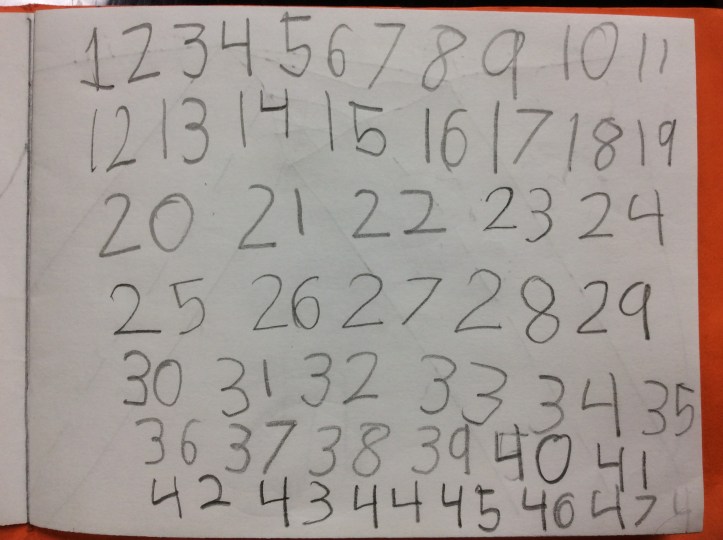 1 2 3 4 5 6 7 8 9 10 11
12 13 14 15 16 17 18 19
20 21 22 23 24
25 26 27 28 29
30 31 32 33 34 35
36 37 38 39 40 41
42 43 44 45 46 47 4